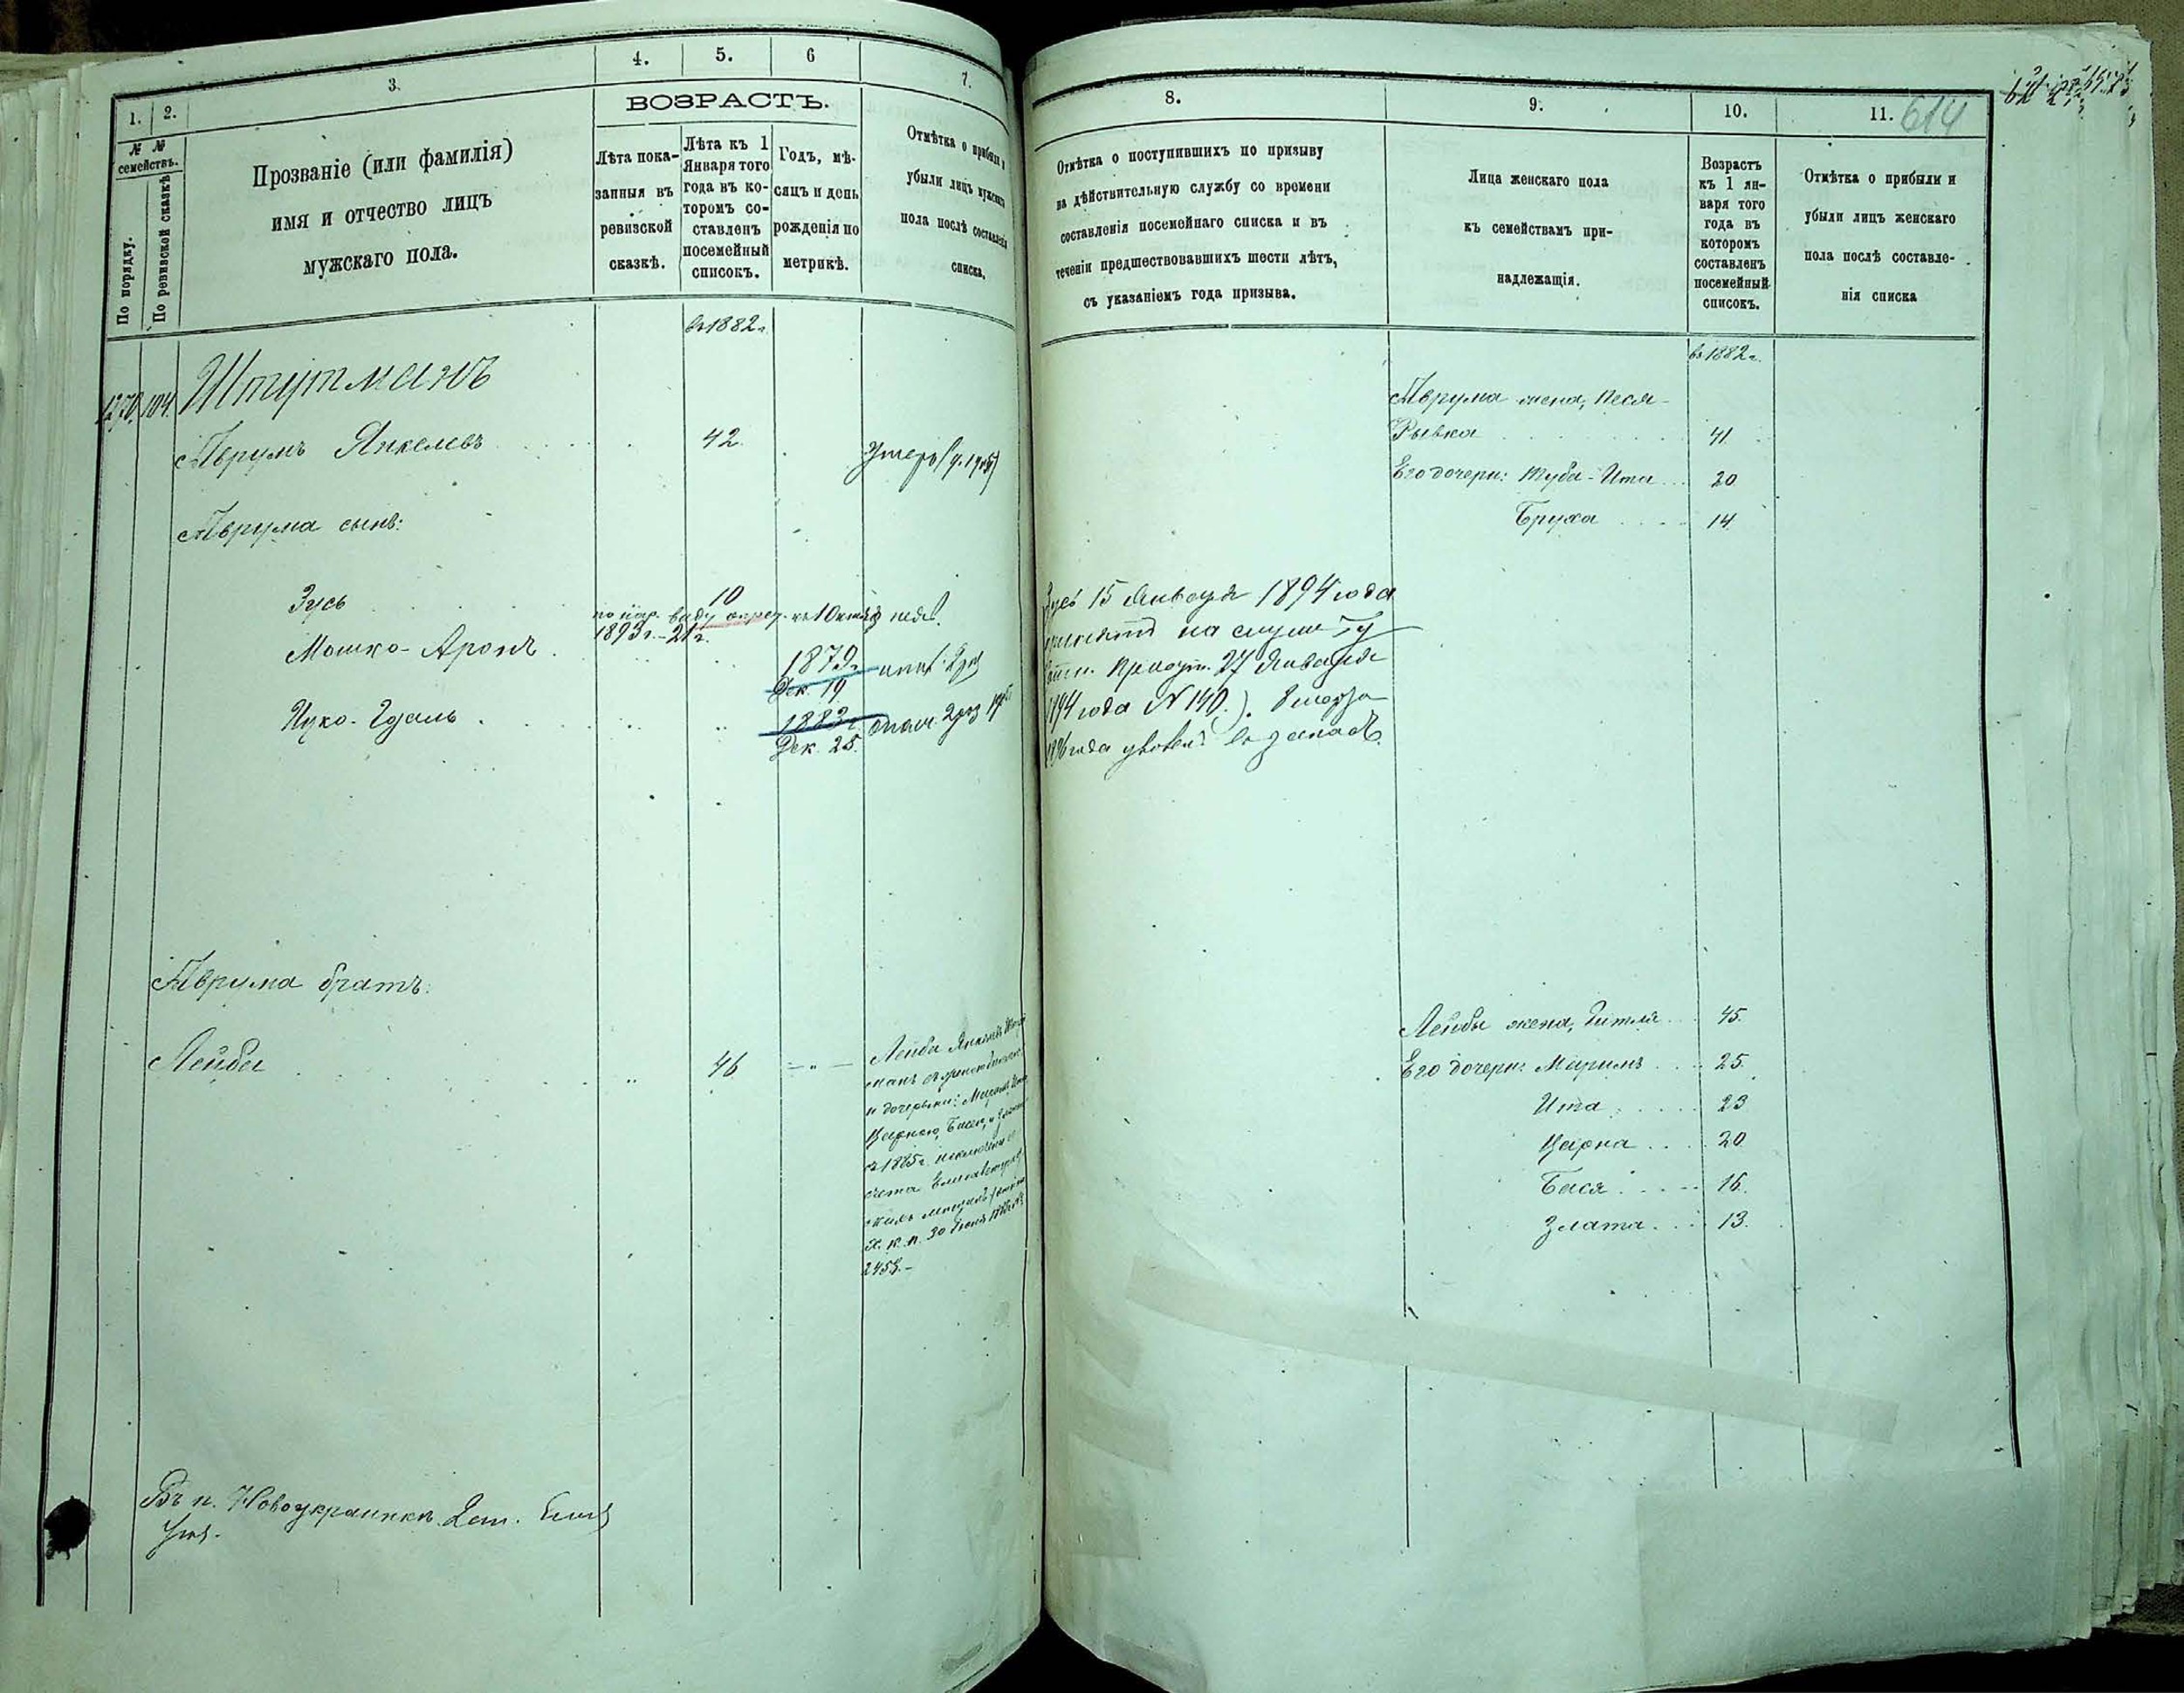 1. 2. 3. 4. 5. 6 7.
№ № семействъ.
По порядку.
По ревизской сказкѣ
Прозваніе (или фамилія)
имя и отчество лицъ
мужскаго пола.
ВОЗРАСТЪ.
Лѣта пока-
занныя въ
ревизской
сказкѣ.
Лѣта къ 1
Января того
года въ ко-
торомъ со-
ставленъ
посемейный
списокъ.
Годъ, мѣ-
сяцъ и день
рожденія по
метрикѣ.
Отмѣтка о прибыли и
убыли лицъ мужскаго
пола послѣ составленія
списка.
въ 1882 г.
1270 104. Штутманъ
Аврумъ Янкелевъ 42. Умеръ
Аврума сынъ:
Зусь 10
1893 г. - 21 г.
Мошко-Аронъ 1879 г.
Дек. 19
Ицко-Гдаль 1883 г.
Дек. 25.
Аврума братъ:
Лейба 46 Лейба Янкелевъ
и дочерьми:
Царною, Басею, и
съ 1885 г. исключены
счета
30 Іюня
2455.-
Въ п. Новоукраинкѣ
8. 9. 10. 11. 614
Отмѣтка о поступившихъ по призыву
на дѣйствительную службу со времени
составленія посемейнаго списка и въ
теченіи предшествовавшихъ шести лѣтъ,
съ указаніемъ года призыва.
Лица женскаго пола
къ семействамъ при-
надлежащія.
Возрастъ
къ 1 ян-
варя того
года въ
которомъ
составленъ
посемейный
списокъ.
Отмѣтка о прибыли и
убыли лицъ женскаго
пола послѣ составле-
нія списка
въ 1882 г.
Аврума жена, Песя-
Рывка 41
Его дочери: Туба-Ита 20
Бруха 14
Зусь 15 Января 1894 года
принятъ на службу
27 Января
1894 года № 140.).
1896 года уволенъ въ запасъ.
Лейбы жена, Гитля 45.
Его дочери: Маримъ 25.
Ита 23
Царна 20
Бася 16.
Злата 13.